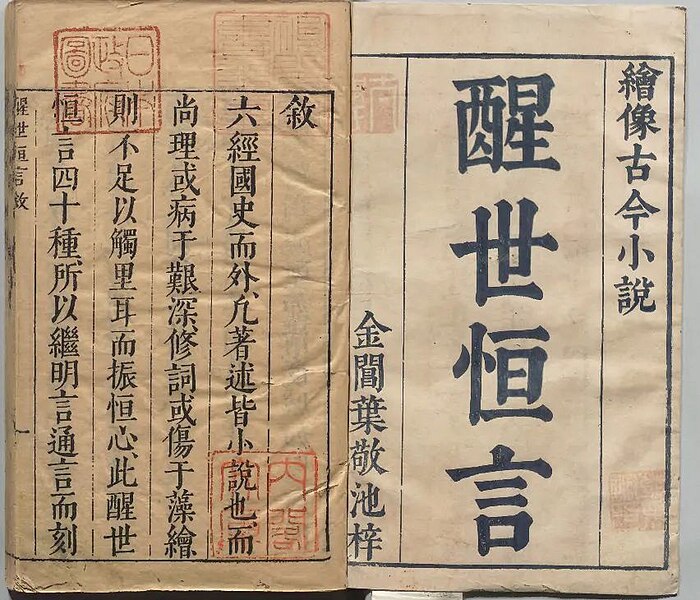 繪像古今小說
醒世恒言
金閶葉敬池梓
敘
六經國史而外、凢著述皆小說也、而
尚理或病于艱深、修詞或傷于藻繪
則不足以觸里耳而振恒心、此醒世
恒言四十種、所以繼明言通言而刻
醒世恒言敘
一
日本
政府
圖書
內閣
文庫